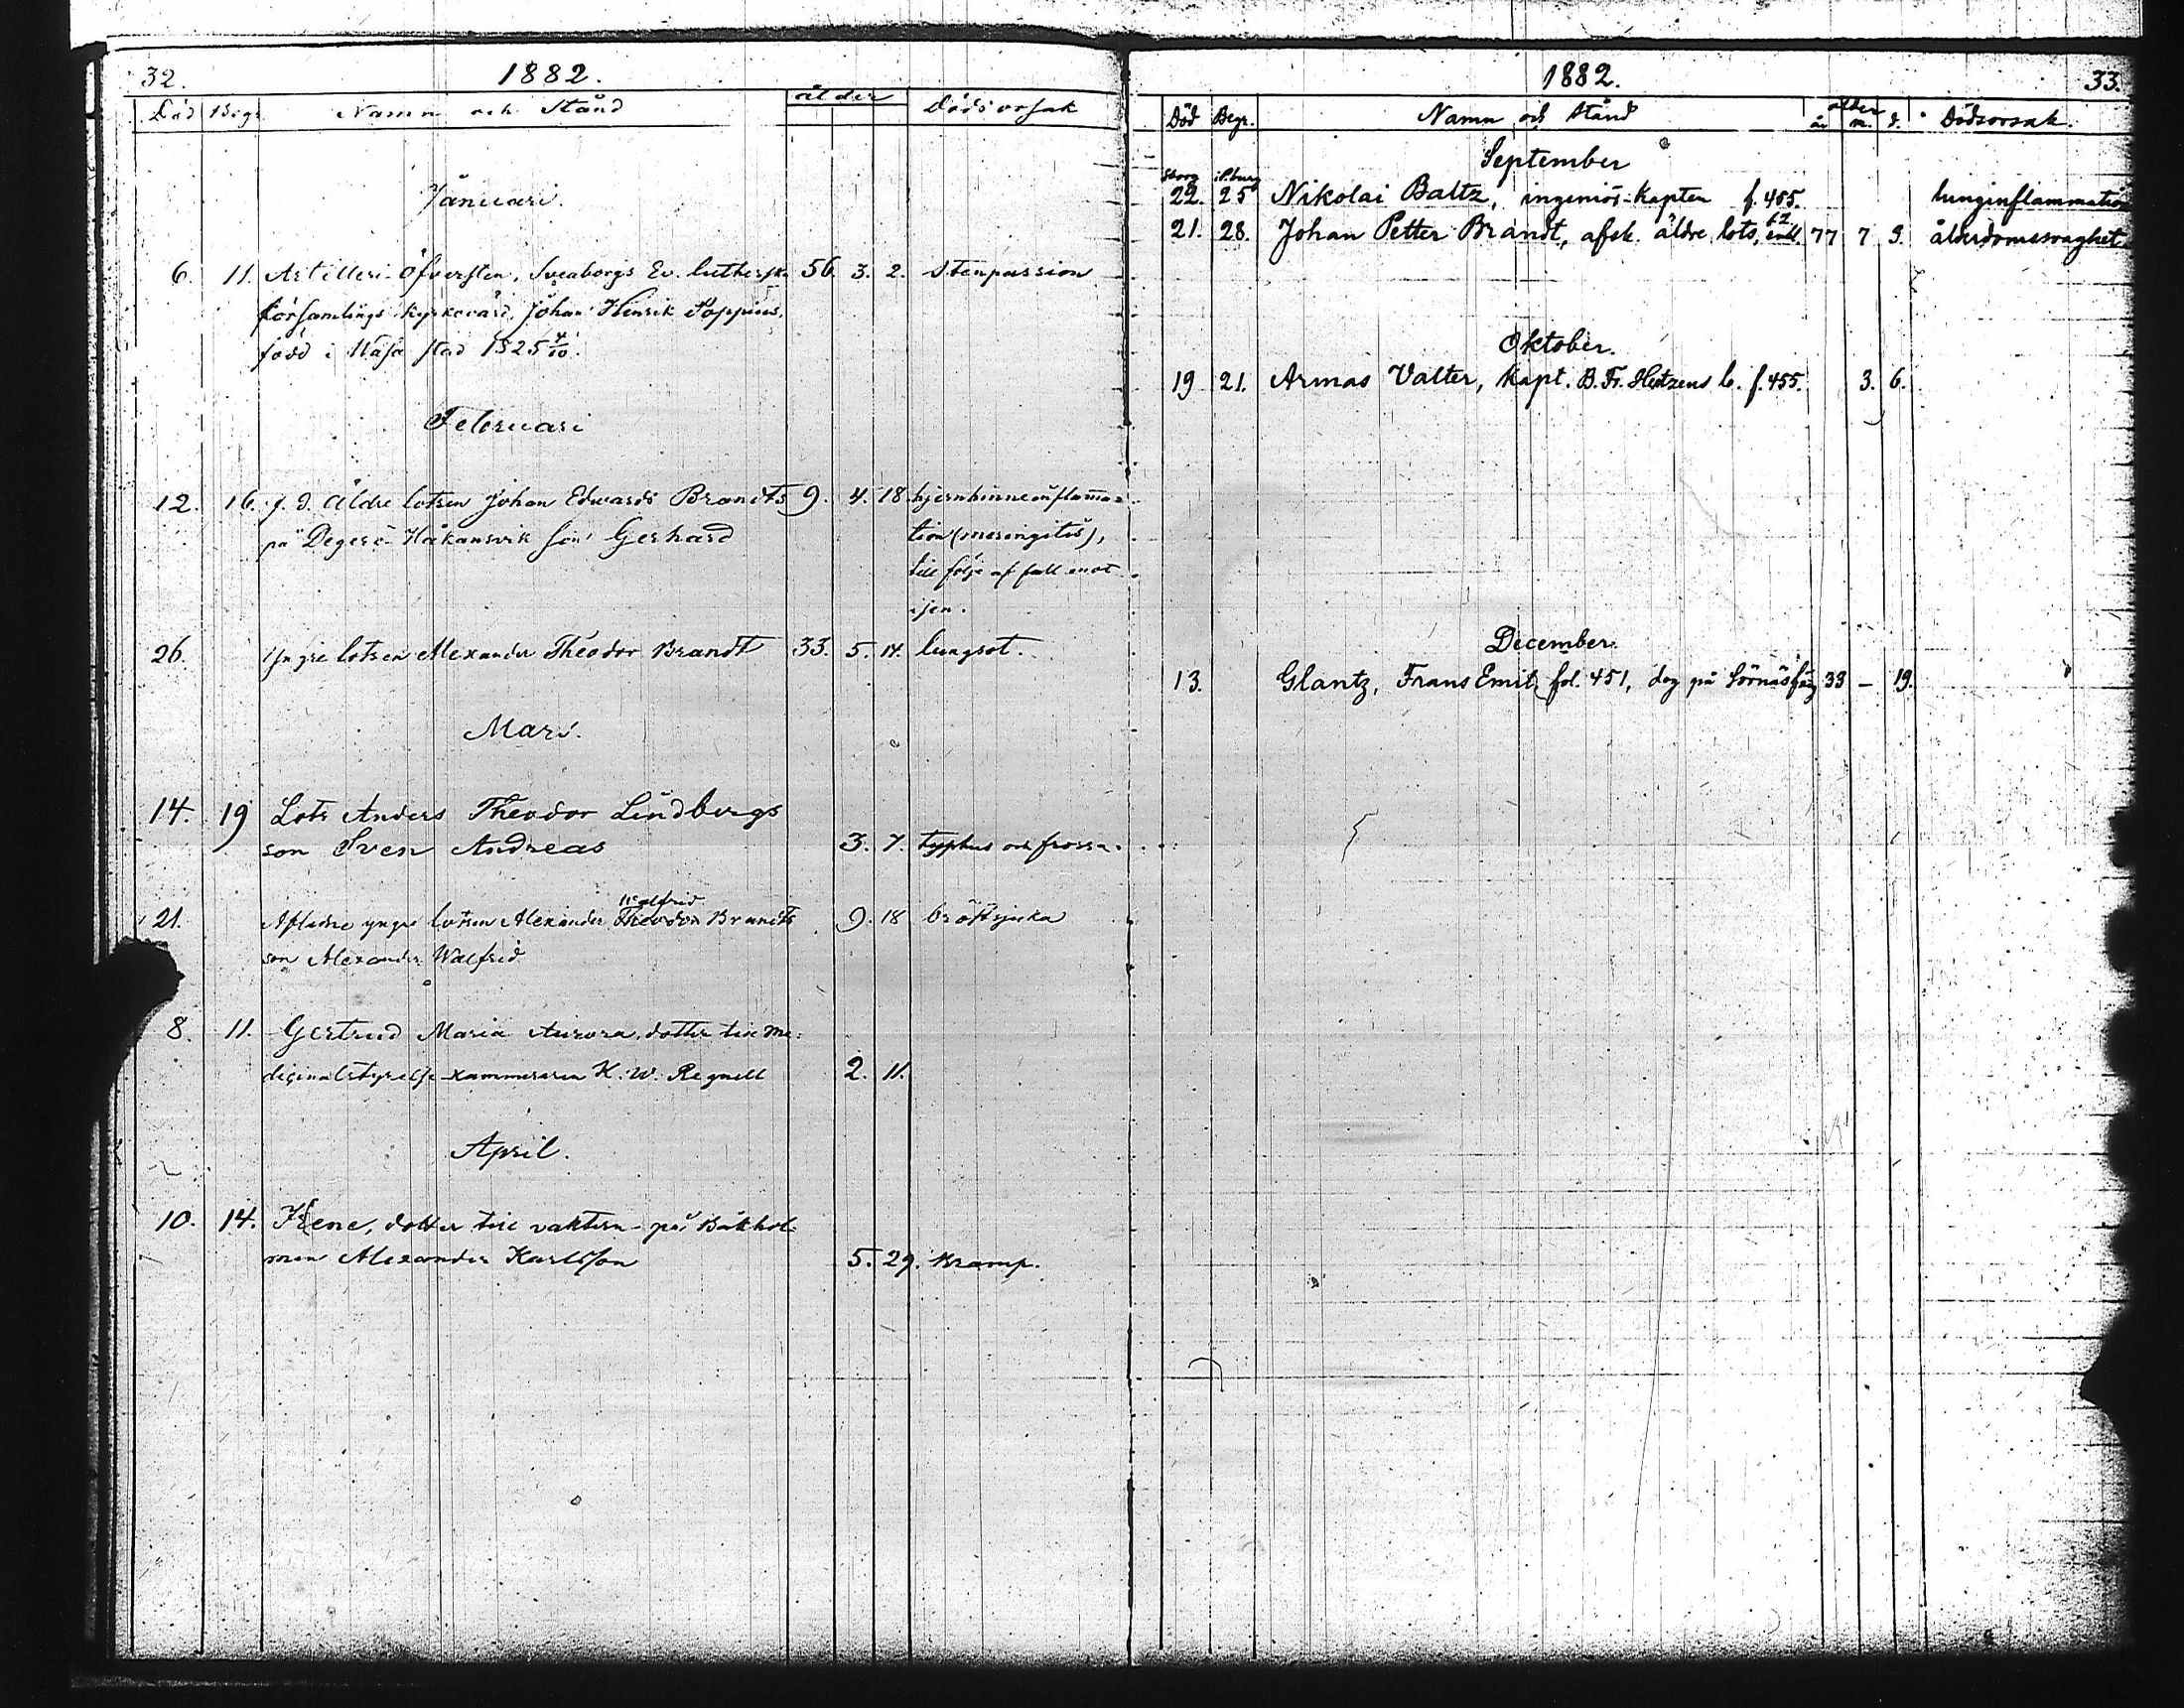 32. 1882.
Död Begr. Namn och Stånd ålder Dödsorsak
Januari.
6. 11. Artilleri-Öfversten, Sveaborgs Ev. lutherska 56. 3. 2. Stenpassion
församlings kyrkovärd, Johan Henrik Toppius,
född i Wasa stad 1825 4/10.
Februari
12. 16. f. d. Äldre lotsen Johan Edwards Brandts 9. 4. 18 hjernhinneinflamma=
på Degerö Håkansvik son Gerhard tion (meningitis),
till följe af fall mot
isen.
26. Yngre lotsen Alexander Theodor Brandt 33. 5. 14. lungsot.
Mars.
14. 19 Lots Anders Theodor Lindbergs
son Sven Andreas 3. 7. typhus och frossa.
Walfrid
21. Aflidne yngre lotsen Alexander Theodor Brandts 9. 18 bröstsjuka
son Alexander Walfrid
8. 11. Gertrud Maria Aurora, dotter till Me=
dicinalstyrelse-kammereren K. W. Regnell 2. 11.
April.
10. 14. Irene, dotter till vakten på Båkhol-
men Alexander Karlsson 5. 29. Kramp.
1882. 33.
Död Begr. Namn och Stånd ålder år m. d. Dödsorsak.
September
22. 25 Nikolai Baltz, ingeniör-kapten f. 455. lunginflammation
21. 28. Johan Petter Brandt, afsk. äldre lots, 77 7 9. ålderdomssvaghet
Oktober.
19 21. Armas Valter, Kapt. B. Fr. Hertzens b. f. 455. 3. 6.
December.
13. Glantz, Frans Emil, fol. 451, dog på Sörnäs fäng 33 – 19.